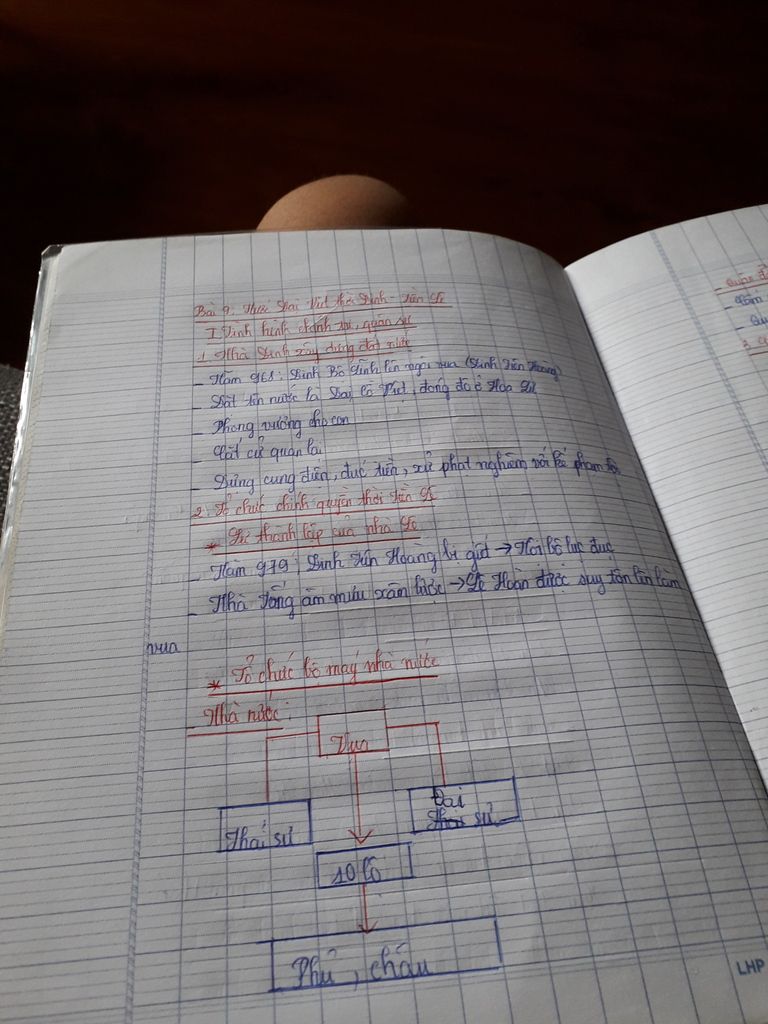 Bài 9. Nước Đại Việt thời Đinh - Tiền Lê
I Tình hình chính trị, quân sự
1. Nhà Đinh xây dựng đất nước
- Năm 968: Đinh Bộ Lĩnh lên ngôi vua (Đinh Tiên Hoàng)
- Đặt tên nước là Đại Cồ Việt, đóng đô ở Hoa Lư
- Phong vương cho con
- Cắt cử quan lại
- Dựng cung điện, đúc tiền, xử phạt nghiêm với kẻ phạm tội
2. Tổ chức chính quyền thời Tiền Lê
* Sự thành lập của nhà Lê
- Năm 979: Đinh Tiên Hoàng bị giết → Nội bộ lục đục
- Nhà Tống âm mưu xâm lược → Lê Hoàn được suy tôn lên làm
vua
* Tổ chức bộ máy nhà nước
- Nhà nước:
Vua
Thái sư
Đại
sư
10 lộ
Phủ, châu
- Quân
3.
LHP